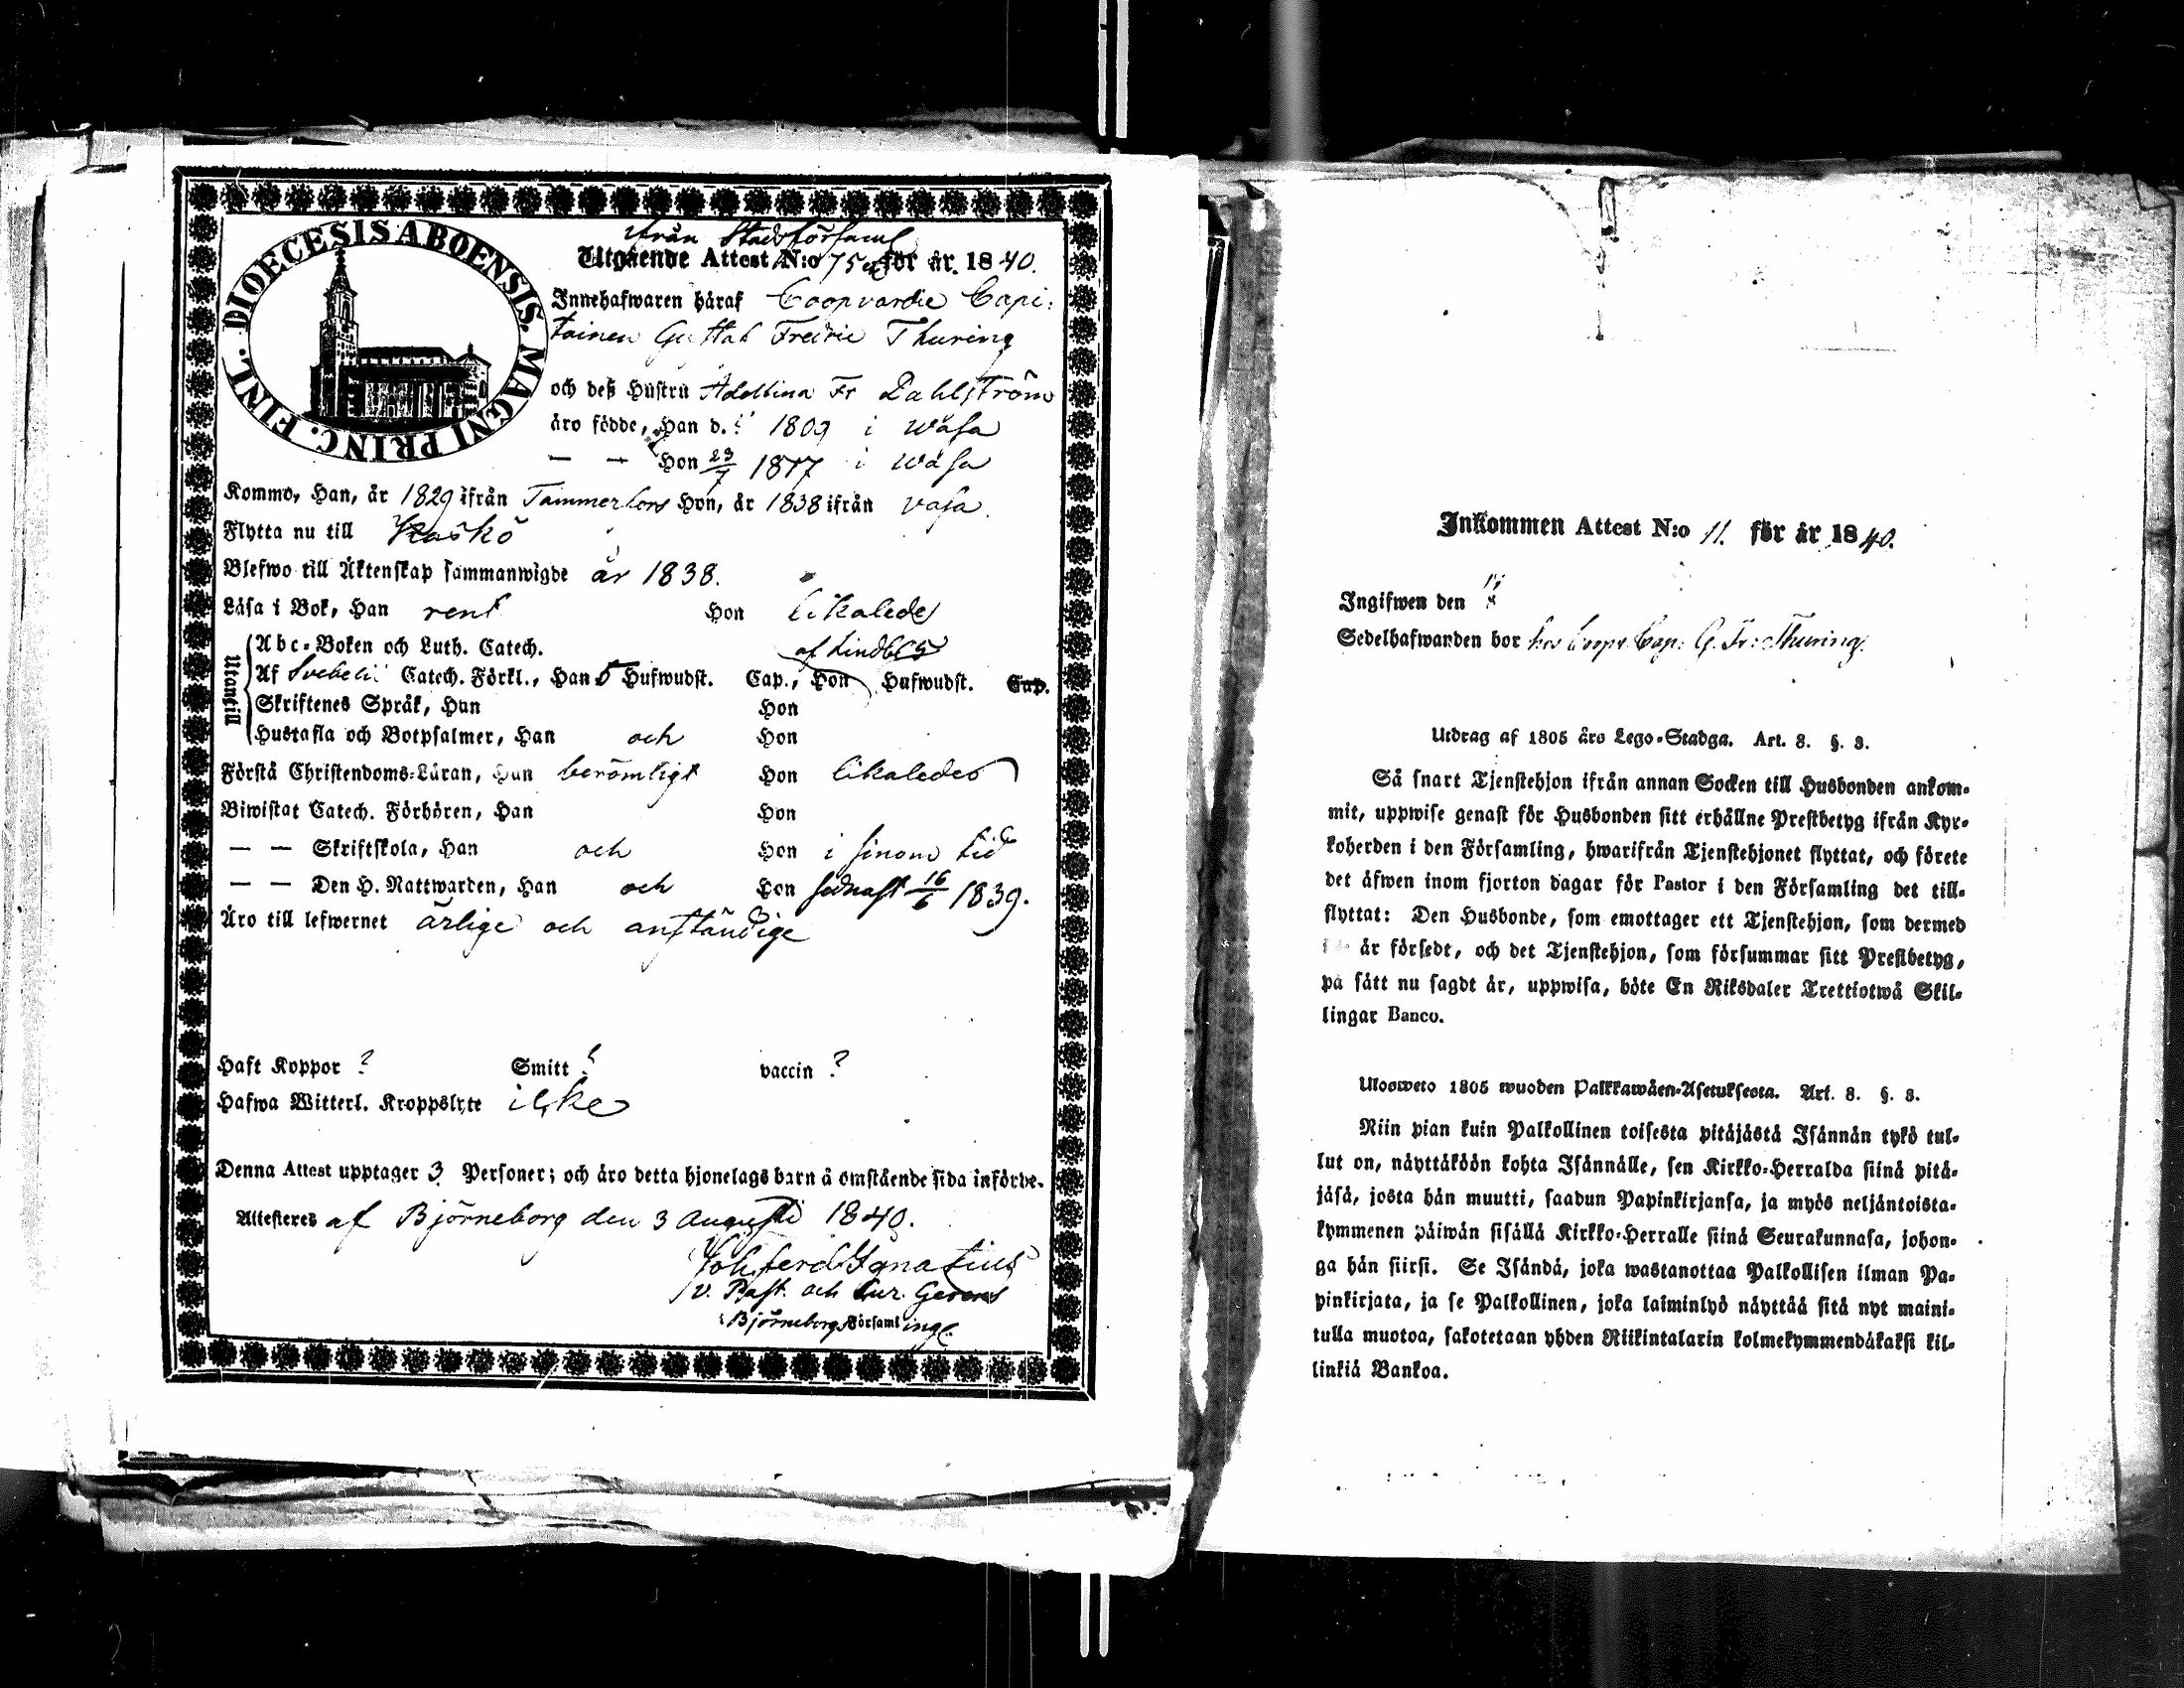 DIOECESIS ABOENSIS. MAGNI PRINC. FINL.
från Stadsförsaml
Utgående Attest N:o 75 för år 1840.
Innehafwaren häraf Coopvardie Capi:
tainen Gustaf Fredric Thuring
och deß Hustru Adolfina Fr Dahlström
äro födde, Han d. 1809 i Wasa
— — Hon 23/7 1817 i Wasa
Kommo, Han, år 1829 ifrån Tammerfors Hon, år 1838 ifrån Vasa.
Flytta nu till Kaskö
Blefwo till Äktenskap sammanwigde år 1838.
Läsa i Bok, Han rent Hon likaledes
Utantill
Abc-Boken och Luth. Catech. af Lindbl:s
Af Svebelii Catech. Förkl., Han 5 Hufwudst. Cap., Hon Hufwudst. Cap.
Skriftenes Språk, Han Hon
Hustafla och Botpsalmer, Han och Hon
Förstå Christendoms-Läran, Han berömligt Hon likaledes
Biwistat Catech. Förhören, Han Hon
— — Skriftskola, Han och Hon i sinom tid
— — Den H. Nattwarden, Han och Hon sednast 16/6 1839.
Äro till lefwernet ärlige och anständige
Haft Koppor ? Smitt ? vaccin ?
Hafwa Witterl. Kroppslyte icke
Denna Attest upptager 3 Personer; och äro detta hjonelags barn å omstående sida införde.
Attesteres af Björneborg den 3 Augusti 1840.
Joh. Ferd. Ignatius
v. Past. och Cur. Gerens
i Björneborgs Församlingl.
Inkommen Attest N:o 11. för år 1840.
Ingifwen den
Sedelhafwanden bor hos Coopv. Cap: G. Fr: Thuring.
Utdrag af 1805 års Lego-Stadga. Art. 8. §. 3.
Så snart Tjenstehjon ifrån annan Socken till Husbonden ankom-
mit, uppwise genast för Husbonden sitt erhållne Prestbetyg ifrån Kyr-
koherden i den Församling, hwarifrån Tjenstehjonet flyttat, och förete
det äfwen inom fjorton dagar för Pastor i den Församling det till-
flyttat: Den Husbonde, som emottager ett Tjenstehjon, som dermed
är försedt, och det Tjenstehjon, som försummar sitt Prestbetyg,
på sätt nu sagdt är, uppwisa, böte En Riksdaler Trettiotwå Skil-
lingar Banco.
Ulosweto 1805 wuoden Palkkawäen-Asetuksesta. Art. 8. §. 3.
Niin pian kuin Palkollinen toisesta pitäjästä Isännän tykö tul-
lut on, näyttäköön kohta Isännälle, sen Kirkko-Herralda siinä pitä-
jäsä, josta hän muutti, saadun Papinkirjansa, ja myös neljäntoista-
kymmenen päiwän sisällä Kirkko-Herralle siinä Seurakunnasa, johon-
ga hän siirsi. Se Isändä, joka wastanottaa Palkollisen ilman Pa-
pinkirjata, ja se Palkollinen, joka laiminlyö näyttää sitä nyt maini-
tulla muotoa, sakotetaan yhden Riikintalarin kolmekymmendäkaksi kil-
linkiä Bankoa.